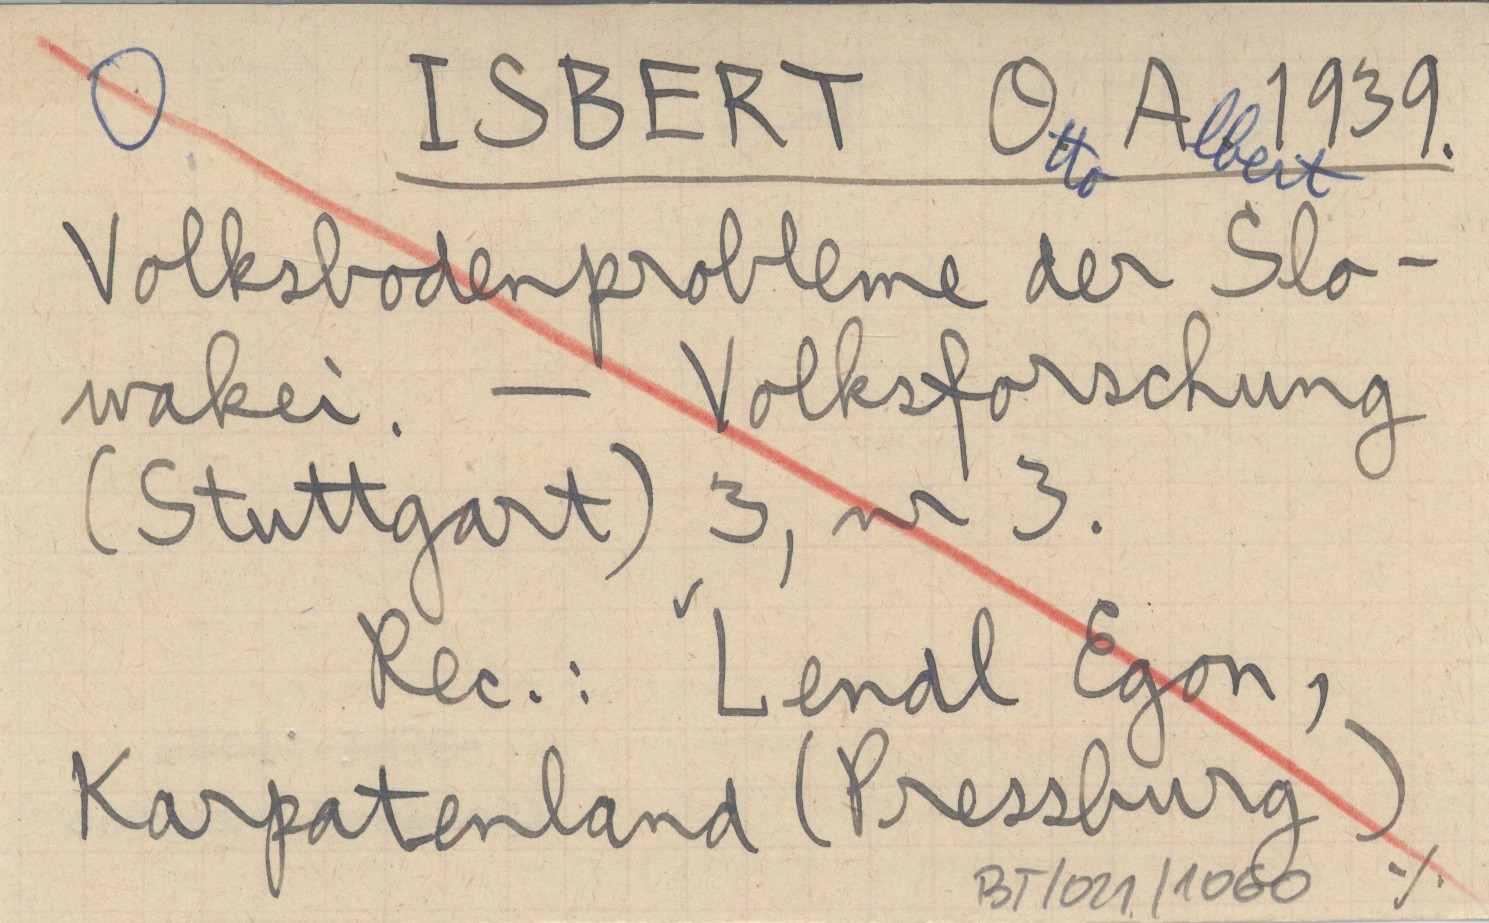 O ISBERT Otto Albert 1939.
Volksbodenprobleme der Slo-
wakei. — Volksforschung
(Stuttgart) 3, nr 3.
Rec.: Lendl Egon,
Karpatenland (Pressburg)
BT/021/1060 ·/·